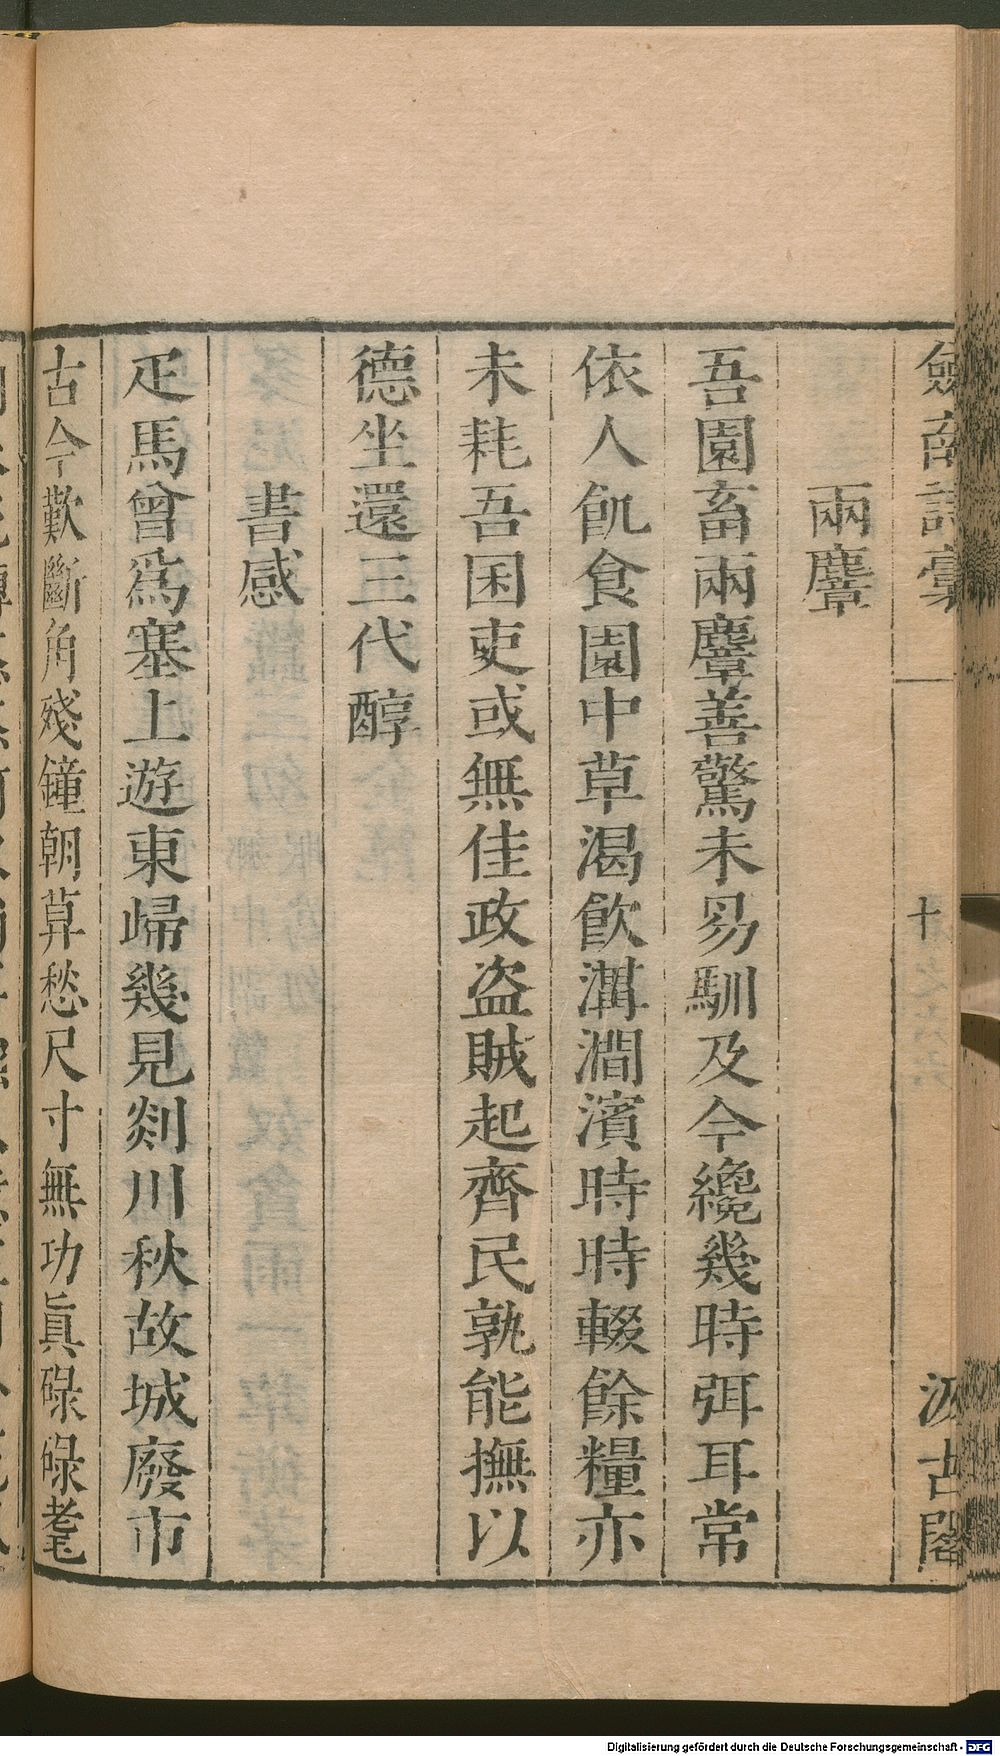 劍南詩稾
十
汲古閣
兩麞
吾園畜兩麞善驚未易馴及今纔幾時弭耳常
依人飢食園中草渴飲溝澗濱時時輟餘糧亦
未耗吾囷吏或無佳政盗賊起齊民孰能撫以
德坐還三代醇
書感
疋馬曾爲塞上遊東歸幾見剡川秋故城廢市
古今歎斷角殘鐘朝莫愁尺寸無功眞碌碌耄
Digitalisierung gefördert durch die Deutsche Forschungsgemeinschaft - DFG